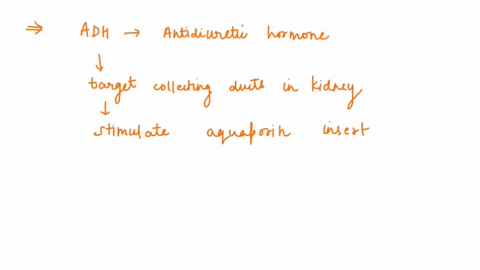 ⇒ ADH → Antidiuretic hormone
↓
target collecting ducts in kidney
↓
stimulate aquaporin insert